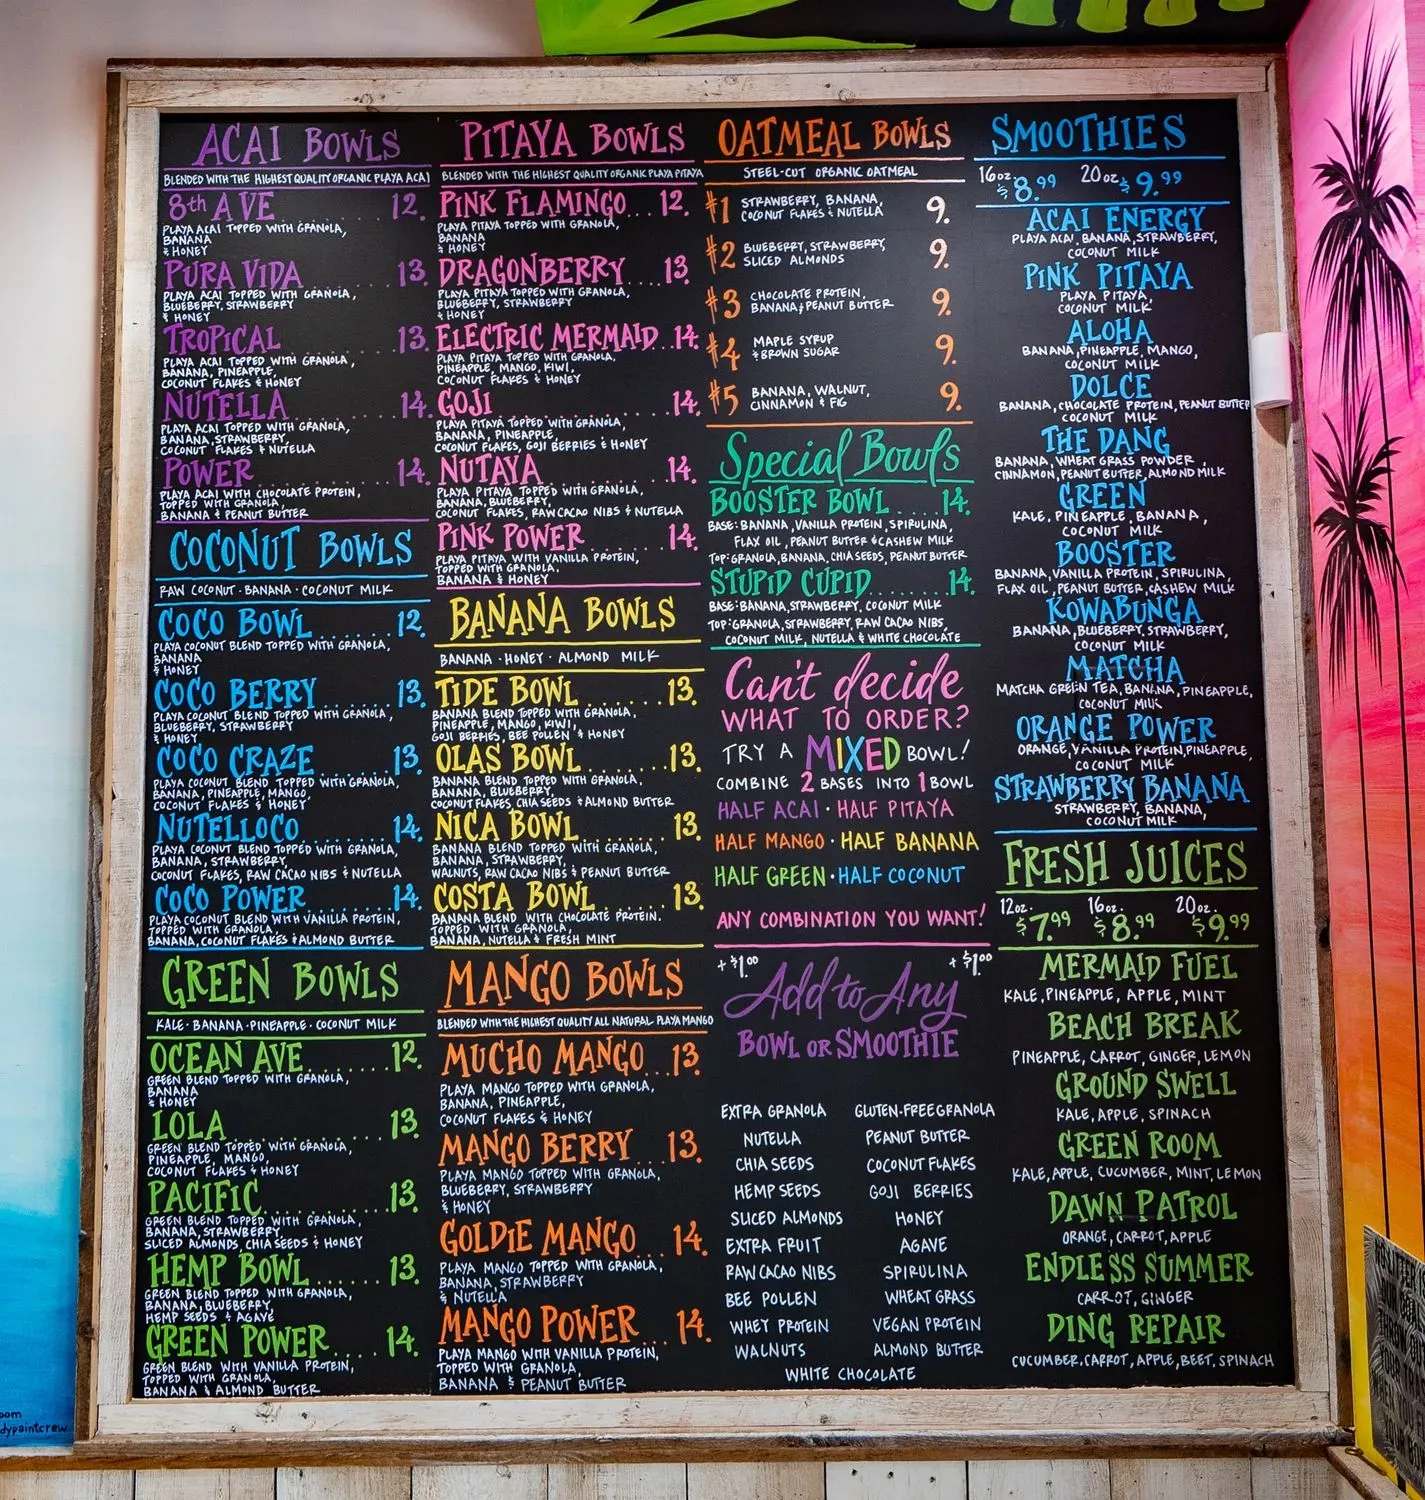 ACAI BOWLS
BLENDED WITH THE HIGHEST QUALITY ORGANIC PLAYA ACAI
8th AVE ..... 12.
PLAYA ACAI TOPPED WITH GRANOLA,
BANANA
& HONEY
PURA VIDA ..... 13.
PLAYA ACAI TOPPED WITH GRANOLA,
BLUEBERRY, STRAWBERRY
& HONEY
TROPICAL ..... 13.
PLAYA ACAI TOPPED WITH GRANOLA,
BANANA, PINEAPPLE,
COCONUT FLAKES & HONEY
NUTELLA ..... 14.
PLAYA ACAI TOPPED WITH GRANOLA,
BANANA, STRAWBERRY,
COCONUT FLAKES & NUTELLA
POWER ..... 14.
PLAYA ACAI WITH CHOCOLATE PROTEIN,
TOPPED WITH GRANOLA,
BANANA & PEANUT BUTTER
COCONUT BOWLS
RAW COCONUT · BANANA · COCONUT MILK
COCO BOWL ..... 12.
PLAYA COCONUT BLEND TOPPED WITH GRANOLA,
BANANA
& HONEY
COCO BERRY ..... 13.
PLAYA COCONUT BLEND TOPPED WITH GRANOLA,
BLUEBERRY, STRAWBERRY
& HONEY
COCO CRAZE ..... 13.
PLAYA COCONUT BLEND TOPPED WITH GRANOLA,
BANANA, PINEAPPLE, MANGO,
COCONUT FLAKES & HONEY
NUTELLOCO ..... 14.
PLAYA COCONUT BLEND TOPPED WITH GRANOLA,
BANANA, STRAWBERRY,
COCONUT FLAKES, RAW CACAO NIBS & NUTELLA
COCO POWER ..... 14.
PLAYA COCONUT BLEND WITH VANILLA PROTEIN,
TOPPED WITH GRANOLA,
BANANA, COCONUT FLAKES & ALMOND BUTTER
GREEN BOWLS
KALE · BANANA · PINEAPPLE · COCONUT MILK
OCEAN AVE ..... 12.
GREEN BLEND TOPPED WITH GRANOLA,
BANANA
& HONEY
LOLA ..... 13.
GREEN BLEND TOPPED WITH GRANOLA,
PINEAPPLE, MANGO,
COCONUT FLAKES & HONEY
PACIFIC ..... 13.
GREEN BLEND TOPPED WITH GRANOLA,
BANANA, STRAWBERRY,
SLICED ALMONDS, CHIA SEEDS & HONEY
HEMP BOWL ..... 13.
GREEN BLEND TOPPED WITH GRANOLA,
BANANA, BLUEBERRY,
HEMP SEEDS & AGAVE
GREEN POWER ..... 14.
GREEN BLEND WITH VANILLA PROTEIN,
TOPPED WITH GRANOLA,
BANANA & ALMOND BUTTER
PITAYA BOWLS
BLENDED WITH THE HIGHEST QUALITY ORGANIC PLAYA PITAYA
PINK FLAMINGO ... 12.
PLAYA PITAYA TOPPED WITH GRANOLA,
BANANA
& HONEY
DRAGONBERRY ... 13.
PLAYA PITAYA TOPPED WITH GRANOLA,
BLUEBERRY, STRAWBERRY
& HONEY
ELECTRIC MERMAID .. 14.
PLAYA PITAYA TOPPED WITH GRANOLA,
PINEAPPLE, MANGO, KIWI,
COCONUT FLAKES & HONEY
GOJI ..... 14.
PLAYA PITAYA TOPPED WITH GRANOLA,
BANANA, PINEAPPLE,
COCONUT FLAKES, GOJI BERRIES & HONEY
NUTAYA ..... 14.
PLAYA PITAYA TOPPED WITH GRANOLA,
BANANA, BLUEBERRY,
COCONUT FLAKES, RAW CACAO NIBS & NUTELLA
PINK POWER ..... 14.
PLAYA PITAYA WITH VANILLA PROTEIN,
TOPPED WITH GRANOLA,
BANANA & HONEY
BANANA BOWLS
BANANA · HONEY · ALMOND MILK
TIDE BOWL ..... 13.
BANANA BLEND TOPPED WITH GRANOLA,
PINEAPPLE, MANGO, KIWI,
GOJI BERRIES, BEE POLLEN & HONEY
OLAS BOWL ..... 13.
BANANA BLEND TOPPED WITH GRANOLA,
BANANA, BLUEBERRY,
COCONUT FLAKES, CHIA SEEDS & ALMOND BUTTER
NICA BOWL ..... 13.
BANANA BLEND TOPPED WITH GRANOLA,
BANANA, STRAWBERRY,
WALNUTS, RAW CACAO NIBS & PEANUT BUTTER
COSTA BOWL ..... 13.
BANANA BLEND WITH CHOCOLATE PROTEIN.
TOPPED WITH GRANOLA,
BANANA, NUTELLA & FRESH MINT
MANGO BOWLS
BLENDED WITH THE HIGHEST QUALITY ALL NATURAL PLAYA MANGO
MUCHO MANGO ... 13.
PLAYA MANGO TOPPED WITH GRANOLA,
BANANA, PINEAPPLE,
COCONUT FLAKES & HONEY
MANGO BERRY ... 13.
PLAYA MANGO TOPPED WITH GRANOLA,
BLUEBERRY, STRAWBERRY
& HONEY
GOLDIE MANGO ... 14.
PLAYA MANGO TOPPED WITH GRANOLA,
BANANA, STRAWBERRY
& NUTELLA
MANGO POWER ... 14.
PLAYA MANGO WITH VANILLA PROTEIN,
TOPPED WITH GRANOLA,
BANANA & PEANUT BUTTER
OATMEAL BOWLS
STEEL-CUT ORGANIC OATMEAL
#1 STRAWBERRY, BANANA, 9.
COCONUT FLAKES & NUTELLA
#2 BLUEBERRY, STRAWBERRY, 9.
SLICED ALMONDS
#3 CHOCOLATE PROTEIN, 9.
BANANA, PEANUT BUTTER
#4 MAPLE SYRUP 9.
& BROWN SUGAR
#5 BANANA, WALNUT, 9.
CINNAMON & FIG
Special Bowls
BOOSTER BOWL ... 14.
BASE: BANANA, VANILLA PROTEIN, SPIRULINA,
FLAX OIL, PEANUT BUTTER & CASHEW MILK
TOP: GRANOLA, BANANA, CHIA SEEDS, PEANUT BUTTER
STUPID CUPID ..... 14.
BASE: BANANA, STRAWBERRY, COCONUT MILK
TOP: GRANOLA, STRAWBERRY, RAW CACAO NIBS,
COCONUT MILK, NUTELLA & WHITE CHOCOLATE
Can't decide
WHAT TO ORDER?
TRY A MIXED BOWL!
COMBINE 2 BASES INTO 1 BOWL
HALF ACAI · HALF PITAYA
HALF MANGO · HALF BANANA
HALF GREEN · HALF COCONUT
ANY COMBINATION YOU WANT!
+ $1.00 + $1.00
Add to Any
BOWL OR SMOOTHIE
EXTRA GRANOLA GLUTEN-FREE GRANOLA
NUTELLA PEANUT BUTTER
CHIA SEEDS COCONUT FLAKES
HEMP SEEDS GOJI BERRIES
SLICED ALMONDS HONEY
EXTRA FRUIT AGAVE
RAW CACAO NIBS SPIRULINA
BEE POLLEN WHEAT GRASS
WHEY PROTEIN VEGAN PROTEIN
WALNUTS ALMOND BUTTER
WHITE CHOCOLATE
SMOOTHIES
16oz. $8.99 20oz. $9.99
ACAI ENERGY
PLAYA ACAI, BANANA, STRAWBERRY,
COCONUT MILK
PINK PITAYA
PLAYA PITAYA,
COCONUT MILK
ALOHA
BANANA, PINEAPPLE, MANGO,
COCONUT MILK
DOLCE
BANANA, CHOCOLATE PROTEIN, PEANUT BUTTER
COCONUT MILK
THE DANG
BANANA, WHEAT GRASS POWDER,
CINNAMON, PEANUT BUTTER, ALMOND MILK
GREEN
KALE, PINEAPPLE, BANANA,
COCONUT MILK
BOOSTER
BANANA, VANILLA PROTEIN, SPIRULINA,
FLAX OIL, PEANUT BUTTER, CASHEW MILK
KOWABUNGA
BANANA, BLUEBERRY, STRAWBERRY,
COCONUT MILK
MATCHA
MATCHA GREEN TEA, BANANA, PINEAPPLE,
COCONUT MILK
ORANGE POWER
ORANGE, VANILLA PROTEIN, PINEAPPLE,
COCONUT MILK
STRAWBERRY BANANA
STRAWBERRY, BANANA,
COCONUT MILK
FRESH JUICES
12oz. $7.99 16oz. $8.99 20oz. $9.99
MERMAID FUEL
KALE, PINEAPPLE, APPLE, MINT
BEACH BREAK
PINEAPPLE, CARROT, GINGER, LEMON
GROUND SWELL
KALE, APPLE, SPINACH
GREEN ROOM
KALE, APPLE, CUCUMBER, MINT, LEMON
DAWN PATROL
ORANGE, CARROT, APPLE
ENDLESS SUMMER
CARROT, GINGER
DING REPAIR
CUCUMBER, CARROT, APPLE, BEET, SPINACH
oom
dypaintcrew